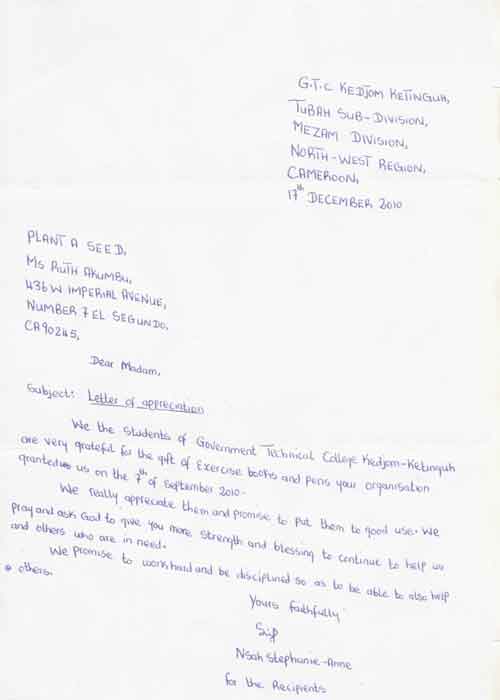 G.T.C KEDJOM KETINGUH,
TUBAH SUB-DIVISION,
MEZAM DIVISION,
NORTH-WEST REGION,
CAMEROON,
17th DECEMBER 2010
PLANT A SEED,
Ms RUTH AKUMBU,
436 W IMPERIAL AVENUE,
NUMBER 7 EL SEGUNDO,
CA 90245,
Dear Madam,
Subject: Letter of appreciation
We the students of Government Technical College Kedjom-Ketinguh
are very grateful for the gift of Exercise books and pens your organisation
granted us on the 7th of September 2010.
We really appreciate them and promise to put them to good use. We
pray and ask God to give you more strength and blessing to continue to help us
and others who are in need.
We promise to workhard and be disciplined so as to be able to also help
others.
Yours faithfully
Nsah Stephanie-Anne
for the Recipients